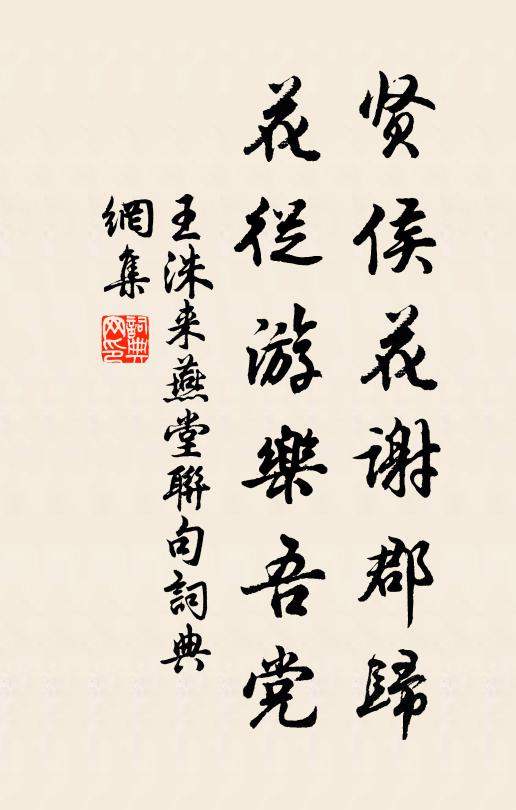 贤侯花谢郡歸
花從游樂吾党
王洙来燕堂聯句詞典
網集
詞典
网印